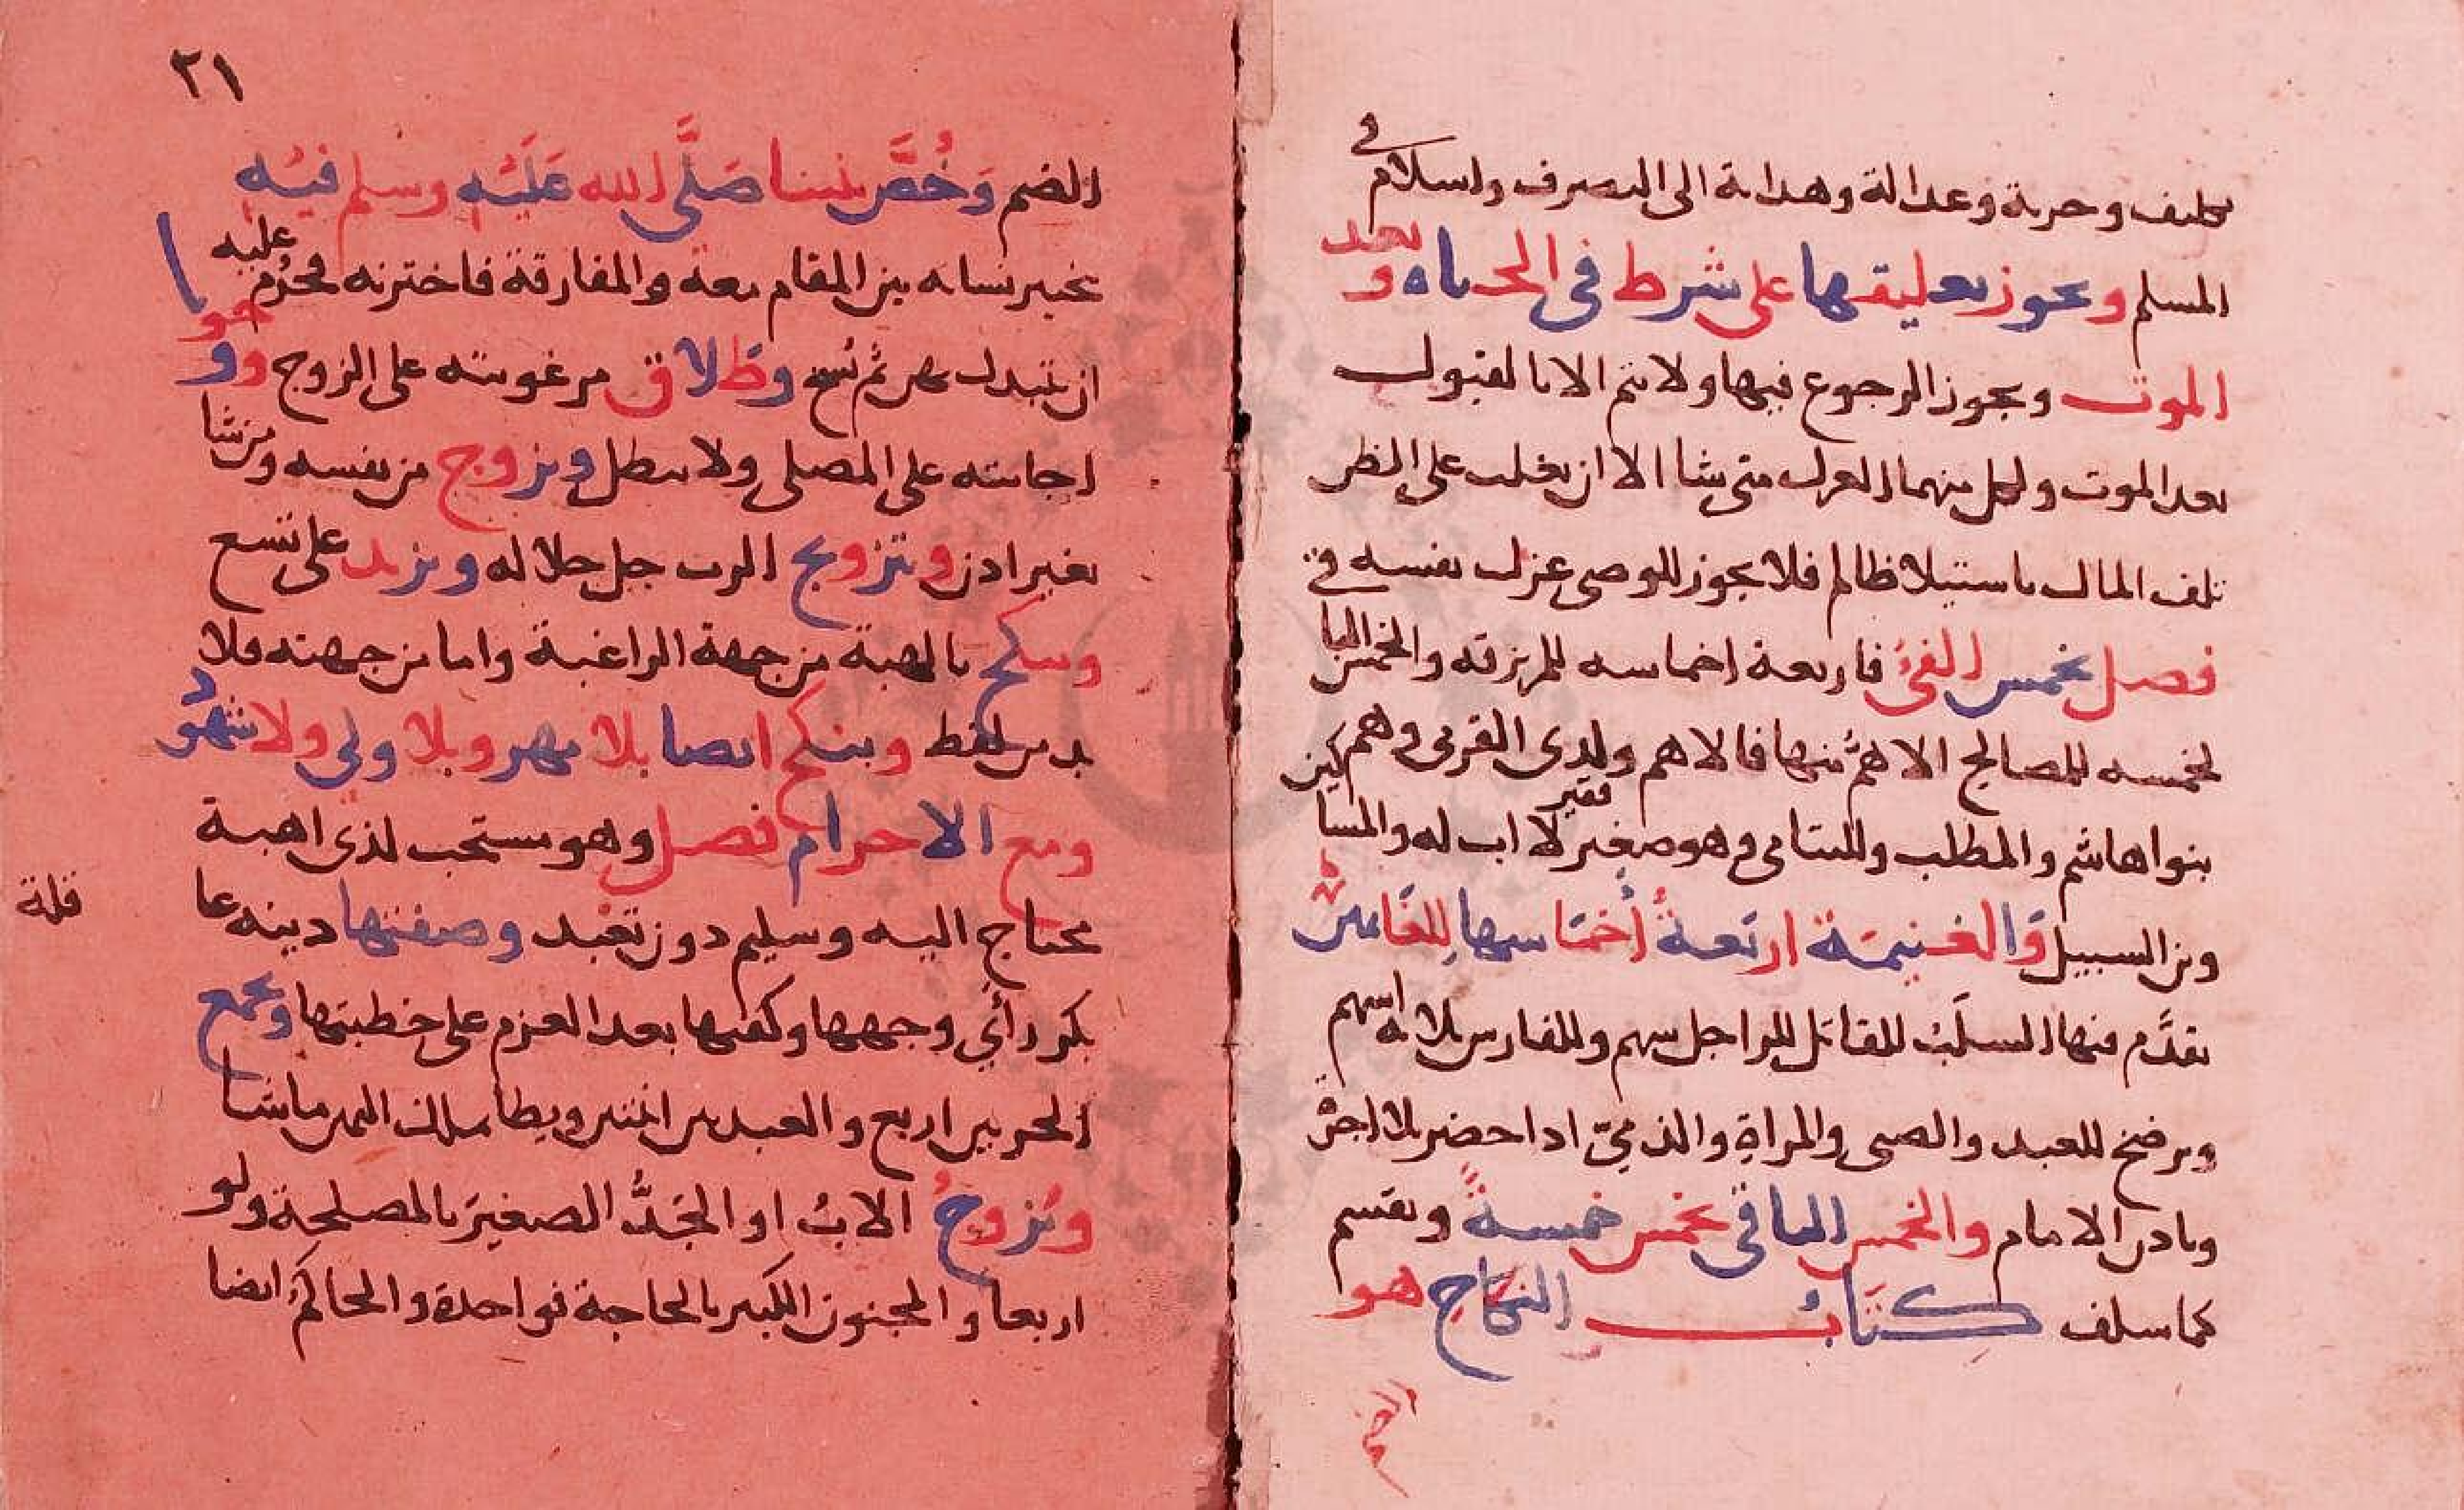 تكليف وحرية وعدالة وهداية الى التصرف واسلام في
المسلم ويجوز تعليقها على شرط في الحياه وبعد
الموت ويجوز الرجوع فيها ولا يتم الا بالقبول
بعد الموت ولكل منهما العزل متى شا الا ان يغلب على الظن
تلف المال باستيلا ظالم فلا يجوز للوصي عزل نفسه
فصل يخمس الفئ فاربعة اخماسه للمرتزقة والخمس البا
لخمسه للمصالح الاهم منها فالاهم ولذي القربى وهم
بنوا هاشم والمطلب ولليتامى وهو صغير فقير لا اب له والمسا كين
وبن السبيل والغنيمة اربعة أخماسها للغانمين
يقدم منها السلب للقاتل للراجل سهم وللفارس ثلاثة اسهم
ويرضخ للعبد والصبي والمراة والذمي اذا حضر بلا اجرة
وباذن الامام والخمس الباقي يخمس خمسة ويقسم
كما سلف كتاب النكاح هو
الضم
٢١
الضم وخص نبينا صلى الله عليه وسلم فيه
بتخيير نسائه بين المقام معه والمفارقة فاخترنه فحرم عليه
ان يتبدل بهن ثم نسخ وطلاق مرغوبته على الزوج وو جو
اجابته على المصلي ولا تبطل ويزوج من نفسه ومن شا
بغير اذن وتزويج الرب جل جلاله ويزيد على تسع
وينكح بالهبة من جهة الراغبة واما من جهته فلا
بد من لفظ وينكح ايضا بلا مهر وبلا ولي ولا شهود
ومع الاحرام فصل وهو مستحب لذي اهبة
محتاج اليه وسليم دون تعبد وصفتها دينه عا
قلة
بكر رأي وجهها وكفيها بعد العزم على خطبتها ويجمع
الحر بين اربع والعبد بين اثنتين ويطا بملك اليمين ما شا
ويزوج الاب او الجد الصغير بالمصلحة ولو
اربعا والمجنون الكبير بالحاجة فواحدة والحاكم ايضا